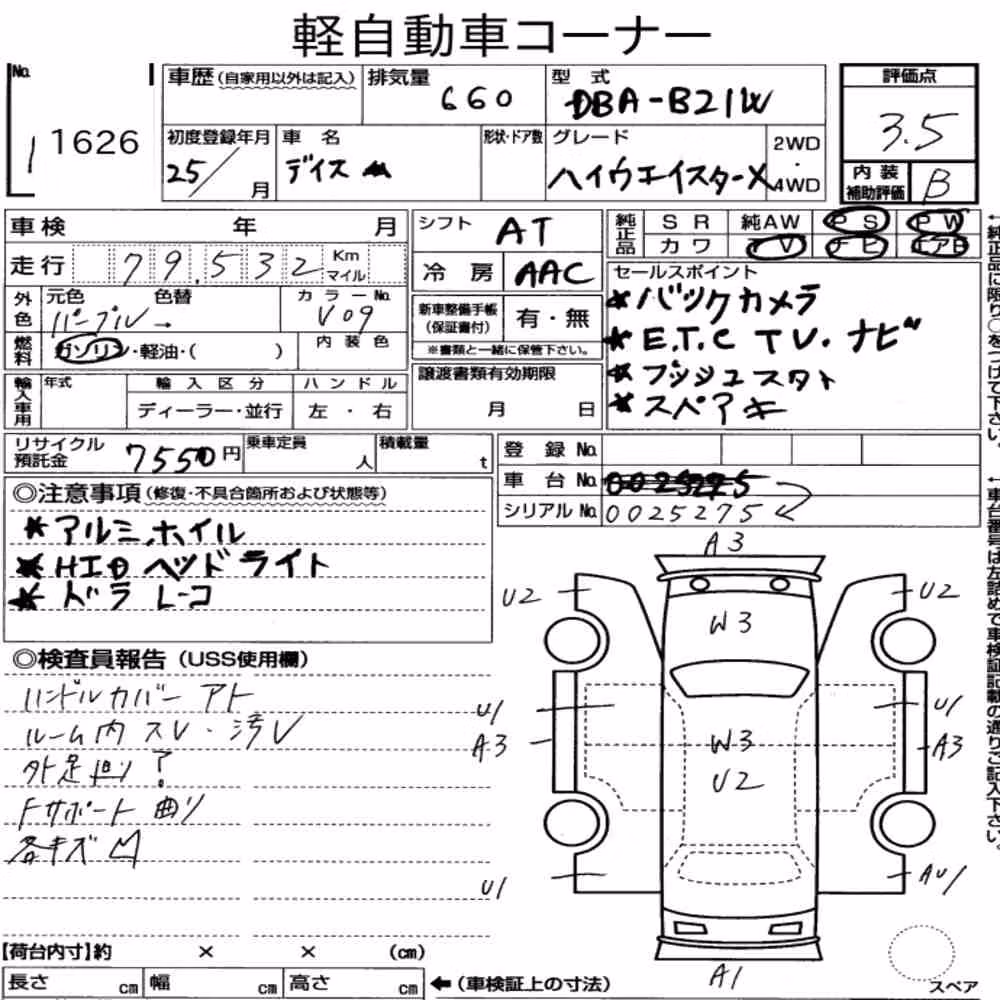 軽自動車コーナー
No.
1 1626
車歴(自家用以外は記入)
排気量 660
型式 DBA-B21W
評価点 3.5
初度登録年月 25/ 月
車名 デイズ
形状・ドア数
グレード ハイウエイスターX
2WD・4WD
内装補助評価 B
車検 年 月
走行 79,532 Km マイル
シフト AT
冷房 AAC
純正品 SR 純AW PS PW
カワ TV ナビ エアB
外色 元色 パープル→ 色替
カラーNo. V09
燃料 ガソリン・軽油・( )
内装色
新車整備手帳(保証書付) 有・無
※書類と一緒に保管下さい。
セールスポイント
★バックカメラ
★E.T.C TV・ナビ
★プッシュスタト
★スペアキ
輸入車用 年式
輸入区分 ディーラー・並行
ハンドル 左・右
譲渡書類有効期限
月 日
リサイクル預託金 7550円
乗車定員 人
積載量 t
登録No.
車台No. 0025275
シリアルNo. 0025275
◎注意事項(修復・不具合箇所および状態等)
★アルミホイル
★HIDヘッドライト
★ドラレコ
◎検査員報告(USS使用欄)
ハンドルカバーアト
ルーム内スレ・汚レ
Fサポート曲り
各キズ凹
A3
U2 U2
W3
U1 U1
A3 W3 A3
U2
U1 AU1
A1
スペア
【荷台内寸】約 × × (cm)
長さ cm 幅 cm 高さ cm ←(車検証上の寸法)
←純正品に限り○をつけて下さい。
←車台番号は左詰めで車検証記載の通りご記入下さい。